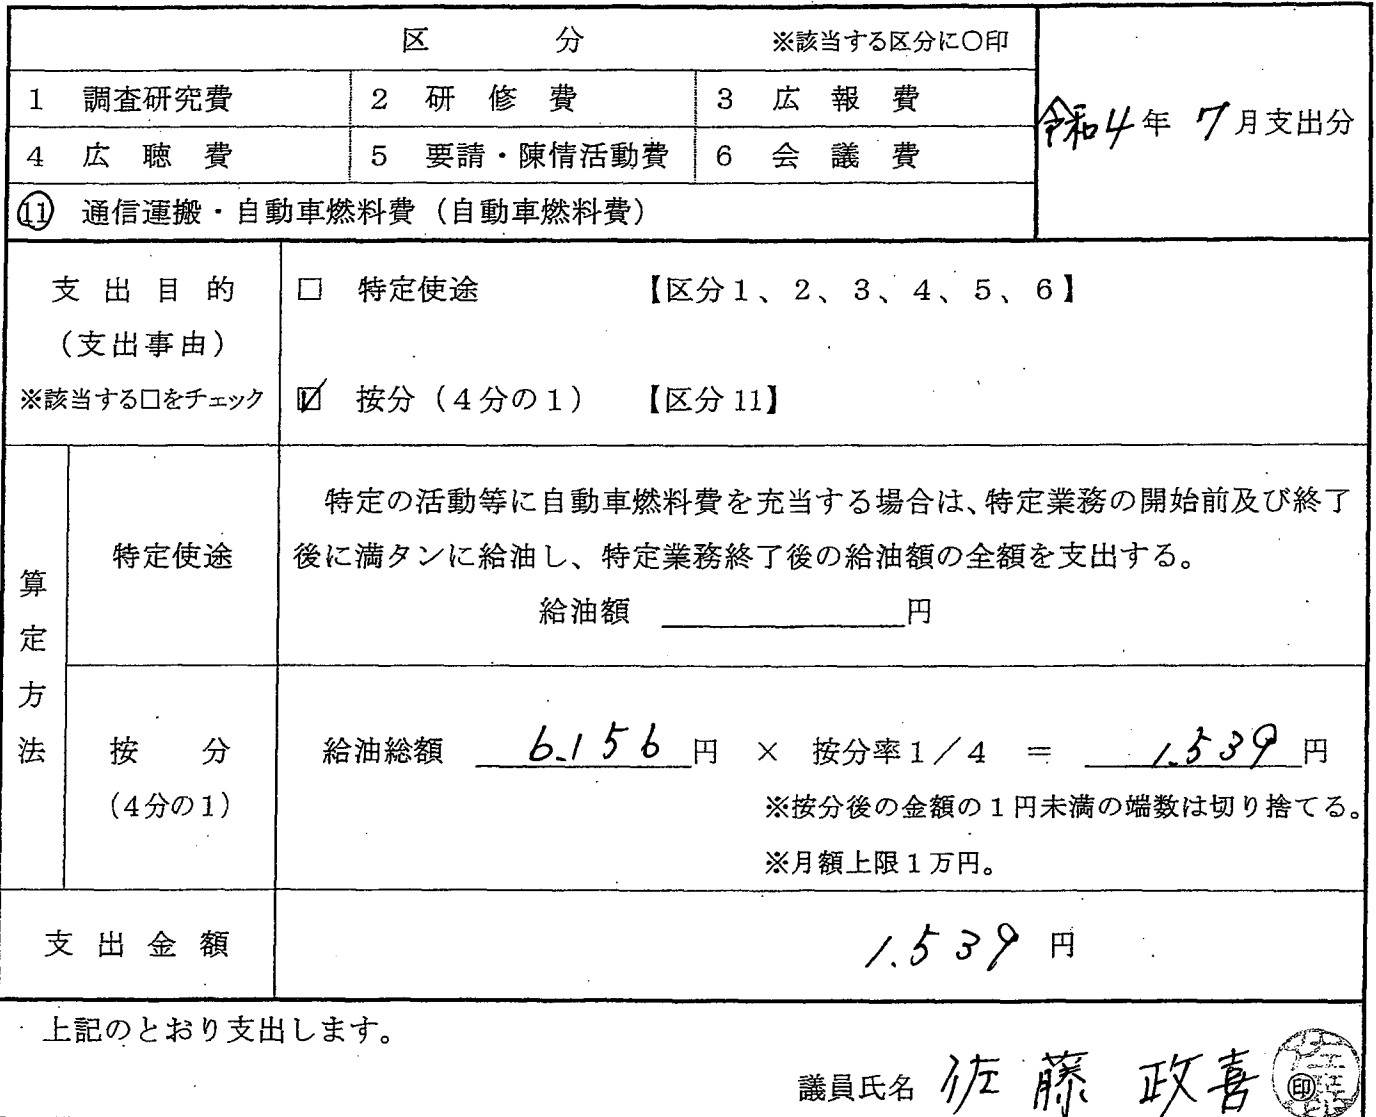 区　　　　分　　　　※該当する区分に〇印
1　調査研究費　2　研　修　費　3　広　報　費
令和4年 7月支出分
4　広　聴　費　5　要請・陳情活動費　6　会　議　費
⑪ 通信運搬・自動車燃料費（自動車燃料費）
支　出　目　的
（支出事由）
※該当する□をチェック
□　特定使途　　　【区分1、2、3、4、5、6】
☑　按分（4分の1）　【区分11】
算定方法
特定使途
特定の活動等に自動車燃料費を充当する場合は、特定業務の開始前及び終了
後に満タンに給油し、特定業務終了後の給油額の全額を支出する。
給油額　　　　　　円
按　　分
（4分の1）
給油総額　6.156円　×　按分率1／4　＝　1.539円
※按分後の金額の1円未満の端数は切り捨てる。
※月額上限1万円。
支　出　金　額　　1.539　円
上記のとおり支出します。
議員氏名　佐藤　政喜　㊞